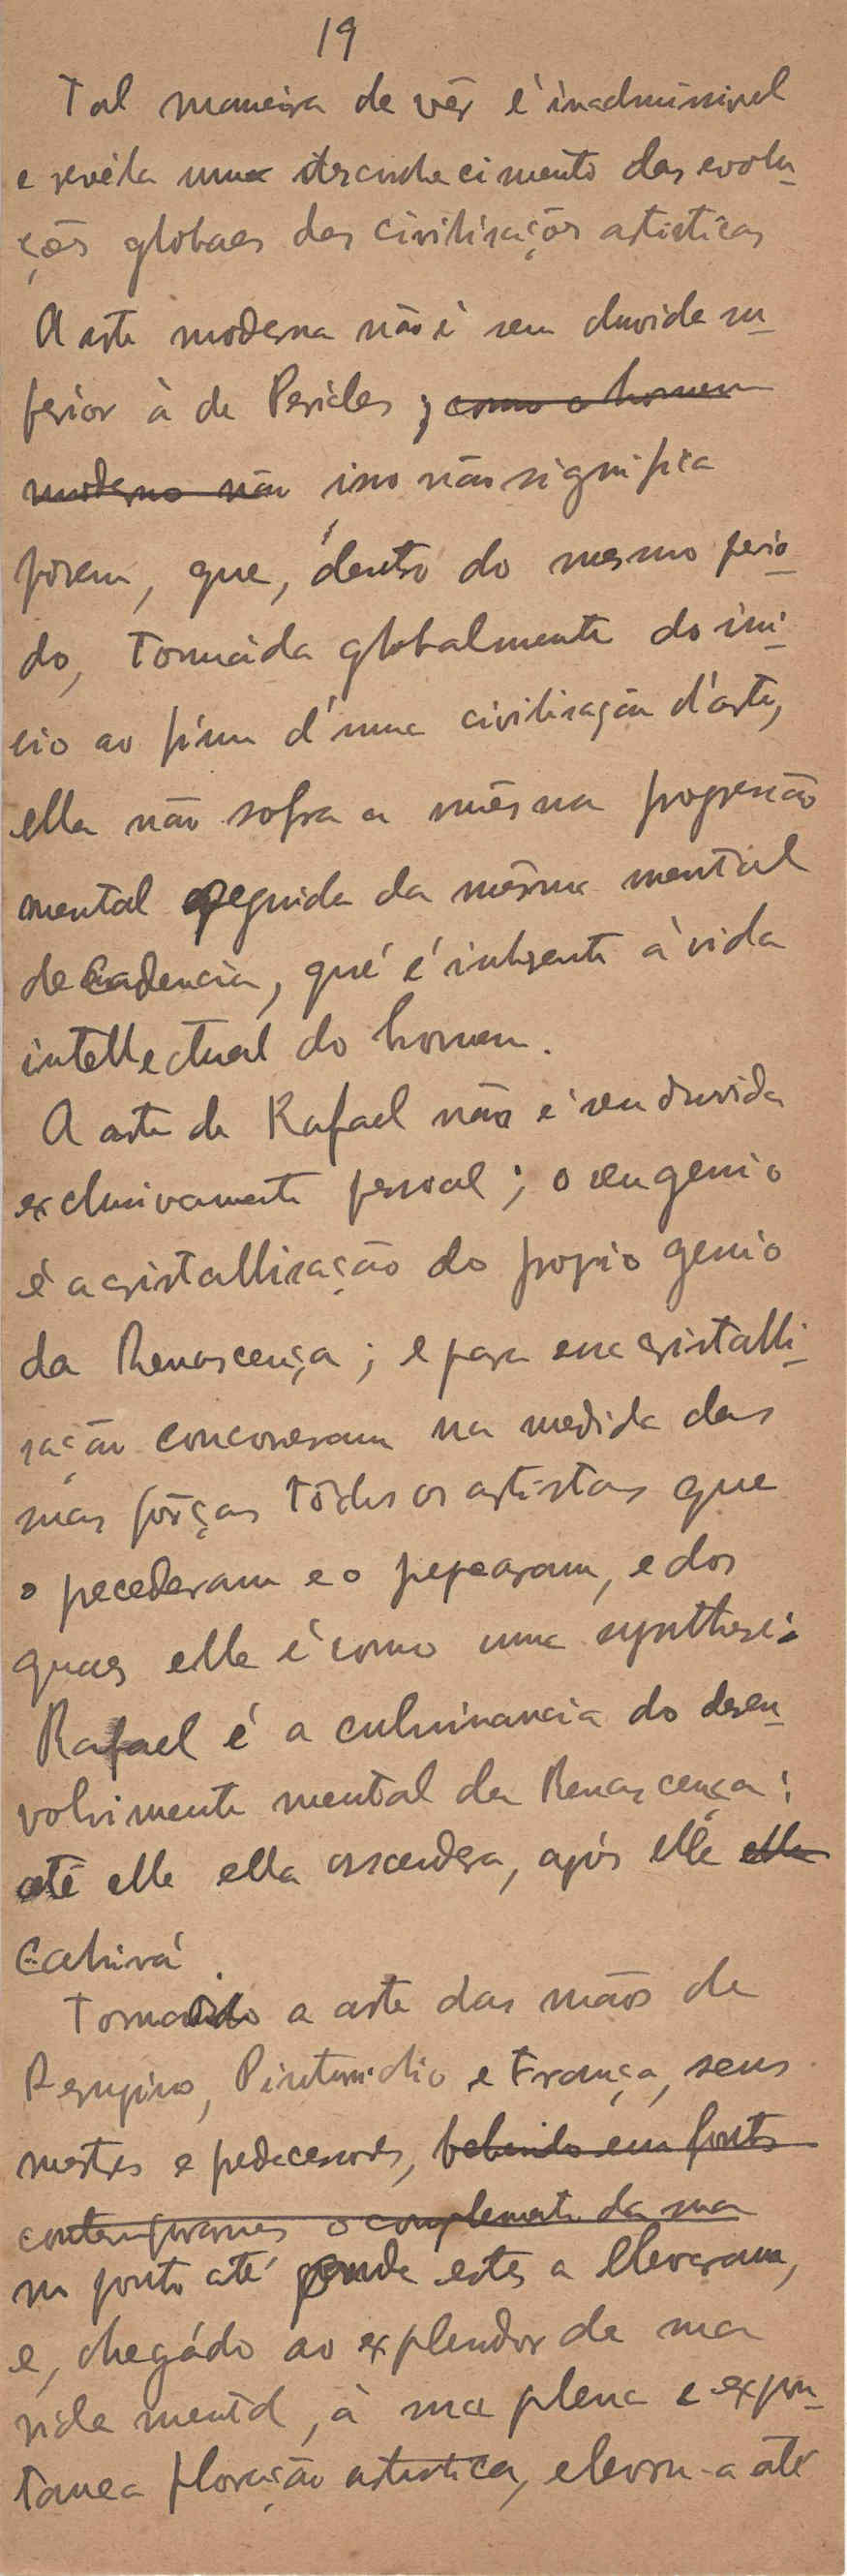 19
Tal maneira de vêr é inadmissivel
e revéla um desconhecimento das evolu-
ções globaes das civilisações artisticas
A arte moderna não é sem duvida su-
perior à de Pericles ; como o homem
moderno não isso não significa
porem, que, dentro do mesmo perio-
do, tomáda globalmente do ini-
cio ao fim d'uma civilisação d'arte,
ella não sofra a mêsma progressão
mental seguida da mêsma mental
decadencia, qué é inherente à vida
intellectual do homem.
A arte de Rafael não é sem duvida
exclusivamente pessoal ; o seu genio
é a cristallisação do proprio genio
da Renascença ; e para essa cristalli-
sação concorreram na medida das
suas fôrças tôdos os artistas que
o precederam e o preparam, e dos
quaes elle é como uma synthese :
Rafael é a culminancia do desen-
volvimento mental da Renascença :
até elle ella ascendera, após elle ella
cahirá .
Tomando a arte das mãos de
Perugino, Pinturichio e Francia, seus
mestres e predecessores, bebendo em fontes
contemporaneas o complemento da sua
no ponto até onde estes a elevaram,
e, chegádo ao explendor da sua
vida mental, à sua plena e expon-
tanea floração artistica, elevou-a até